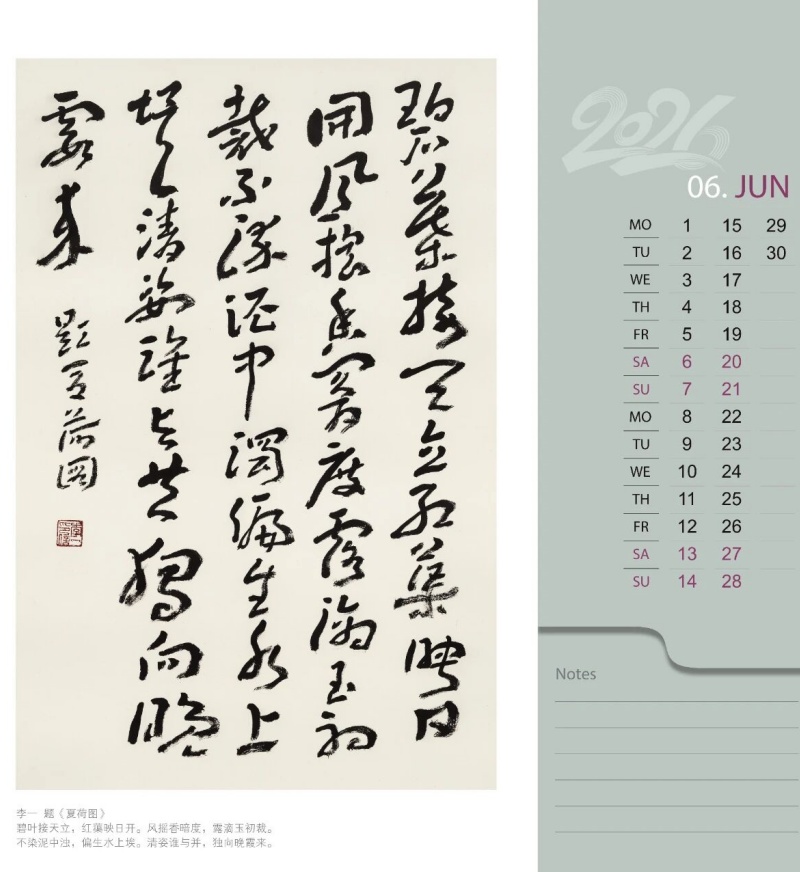 碧葉接天立紅蕖映日
開風摇香闇度露滴玉初
裁不染泥中濁偏生水上
埃清姿誰与共獨向晚
霞来
題夏荷圖
李一 题《夏荷图》
碧叶接天立，红蕖映日开。风摇香暗度，露滴玉初裁。
不染泥中浊，偏生水上埃。清姿谁与并，独向晚霞来。
2026
06. JUN
MO 1 15 29
TU 2 16 30
WE 3 17
TH 4 18
FR 5 19
SA 6 20
SU 7 21
MO 8 22
TU 9 23
WE 10 24
TH 11 25
FR 12 26
SA 13 27
SU 14 28
Notes